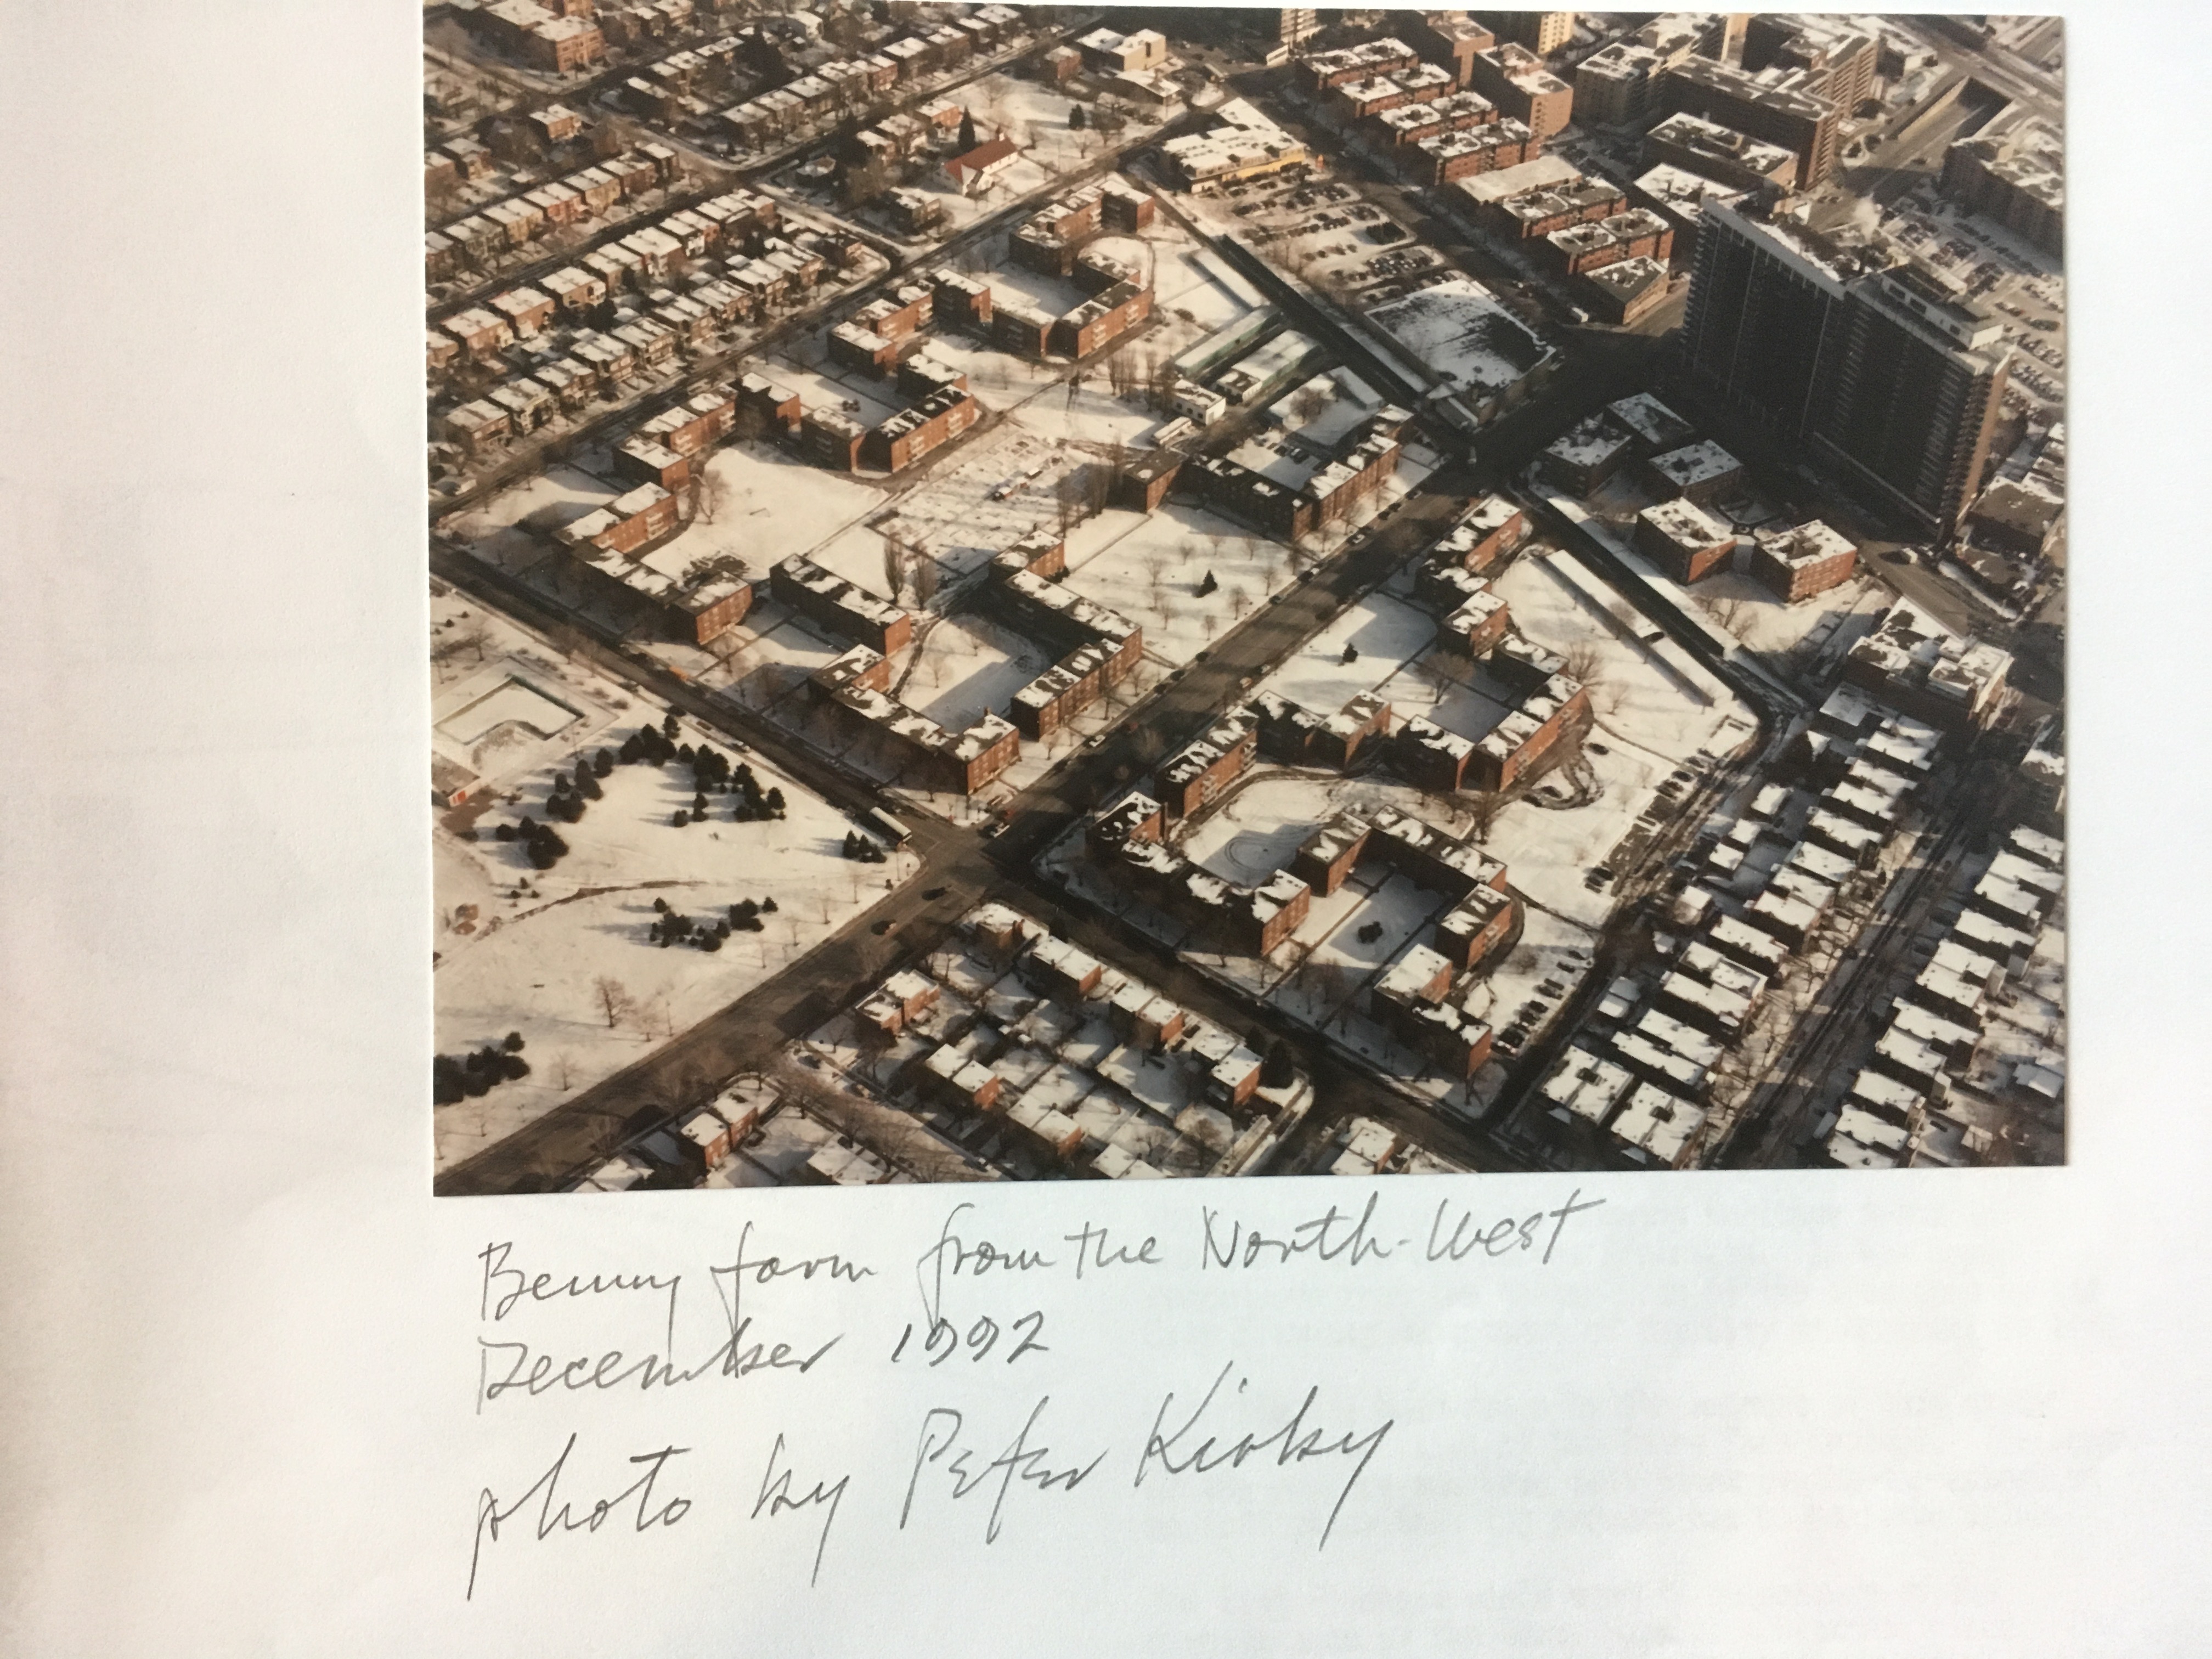 Benny farm from the North-West
December 1992
photo by Peter Kirby